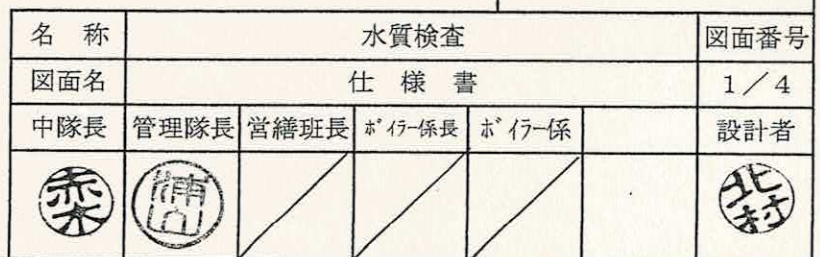 名 称 水質検査 図面番号
図面名 仕 様 書 1/4
中隊長 管理隊長 営繕班長 ボイラー係長 ボイラー係 設計者
赤木 浦山 北村